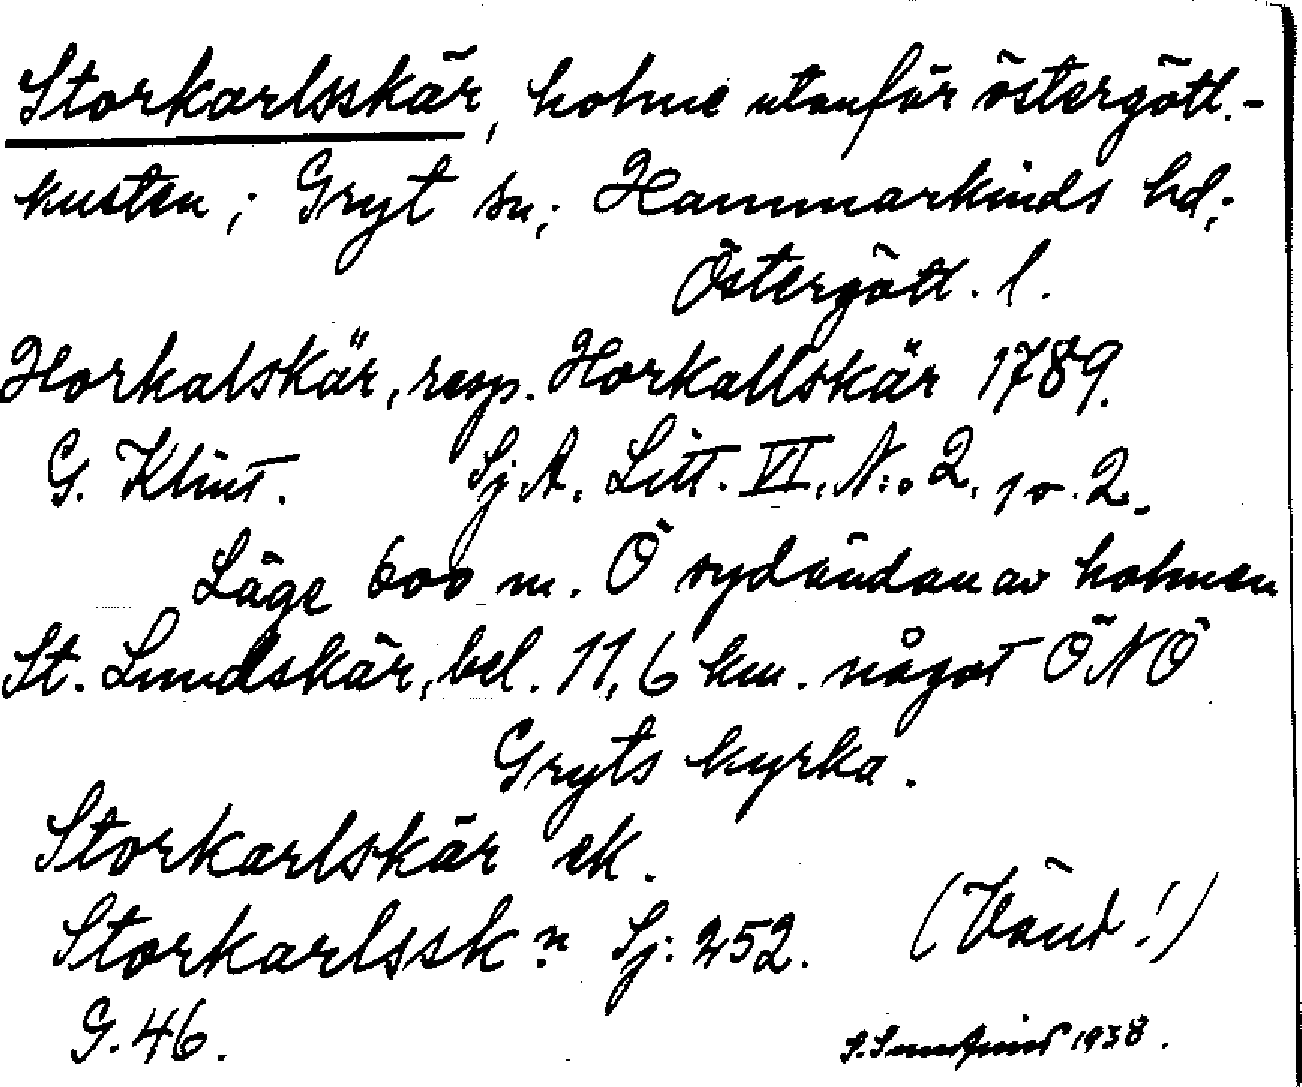 Storkarlsskär, holme utanför östergötl.-
kusten; Gryt sn; Hammarkinds hd;
Östergötl. l.
Horkalskär, resp. Horkallskär 1789.
G. Klint. Sj.A. Litt. VI. N:o 2.
Läge 600 m. Ö sydändan av holmen
St. Lundskär, bel. 11,6 km. något ÖNÖ
Gryts kyrka.
Storkarlskär ek.
Storkarlssk:n Sj: 252. (Vänd!)
G. 46. 1938.